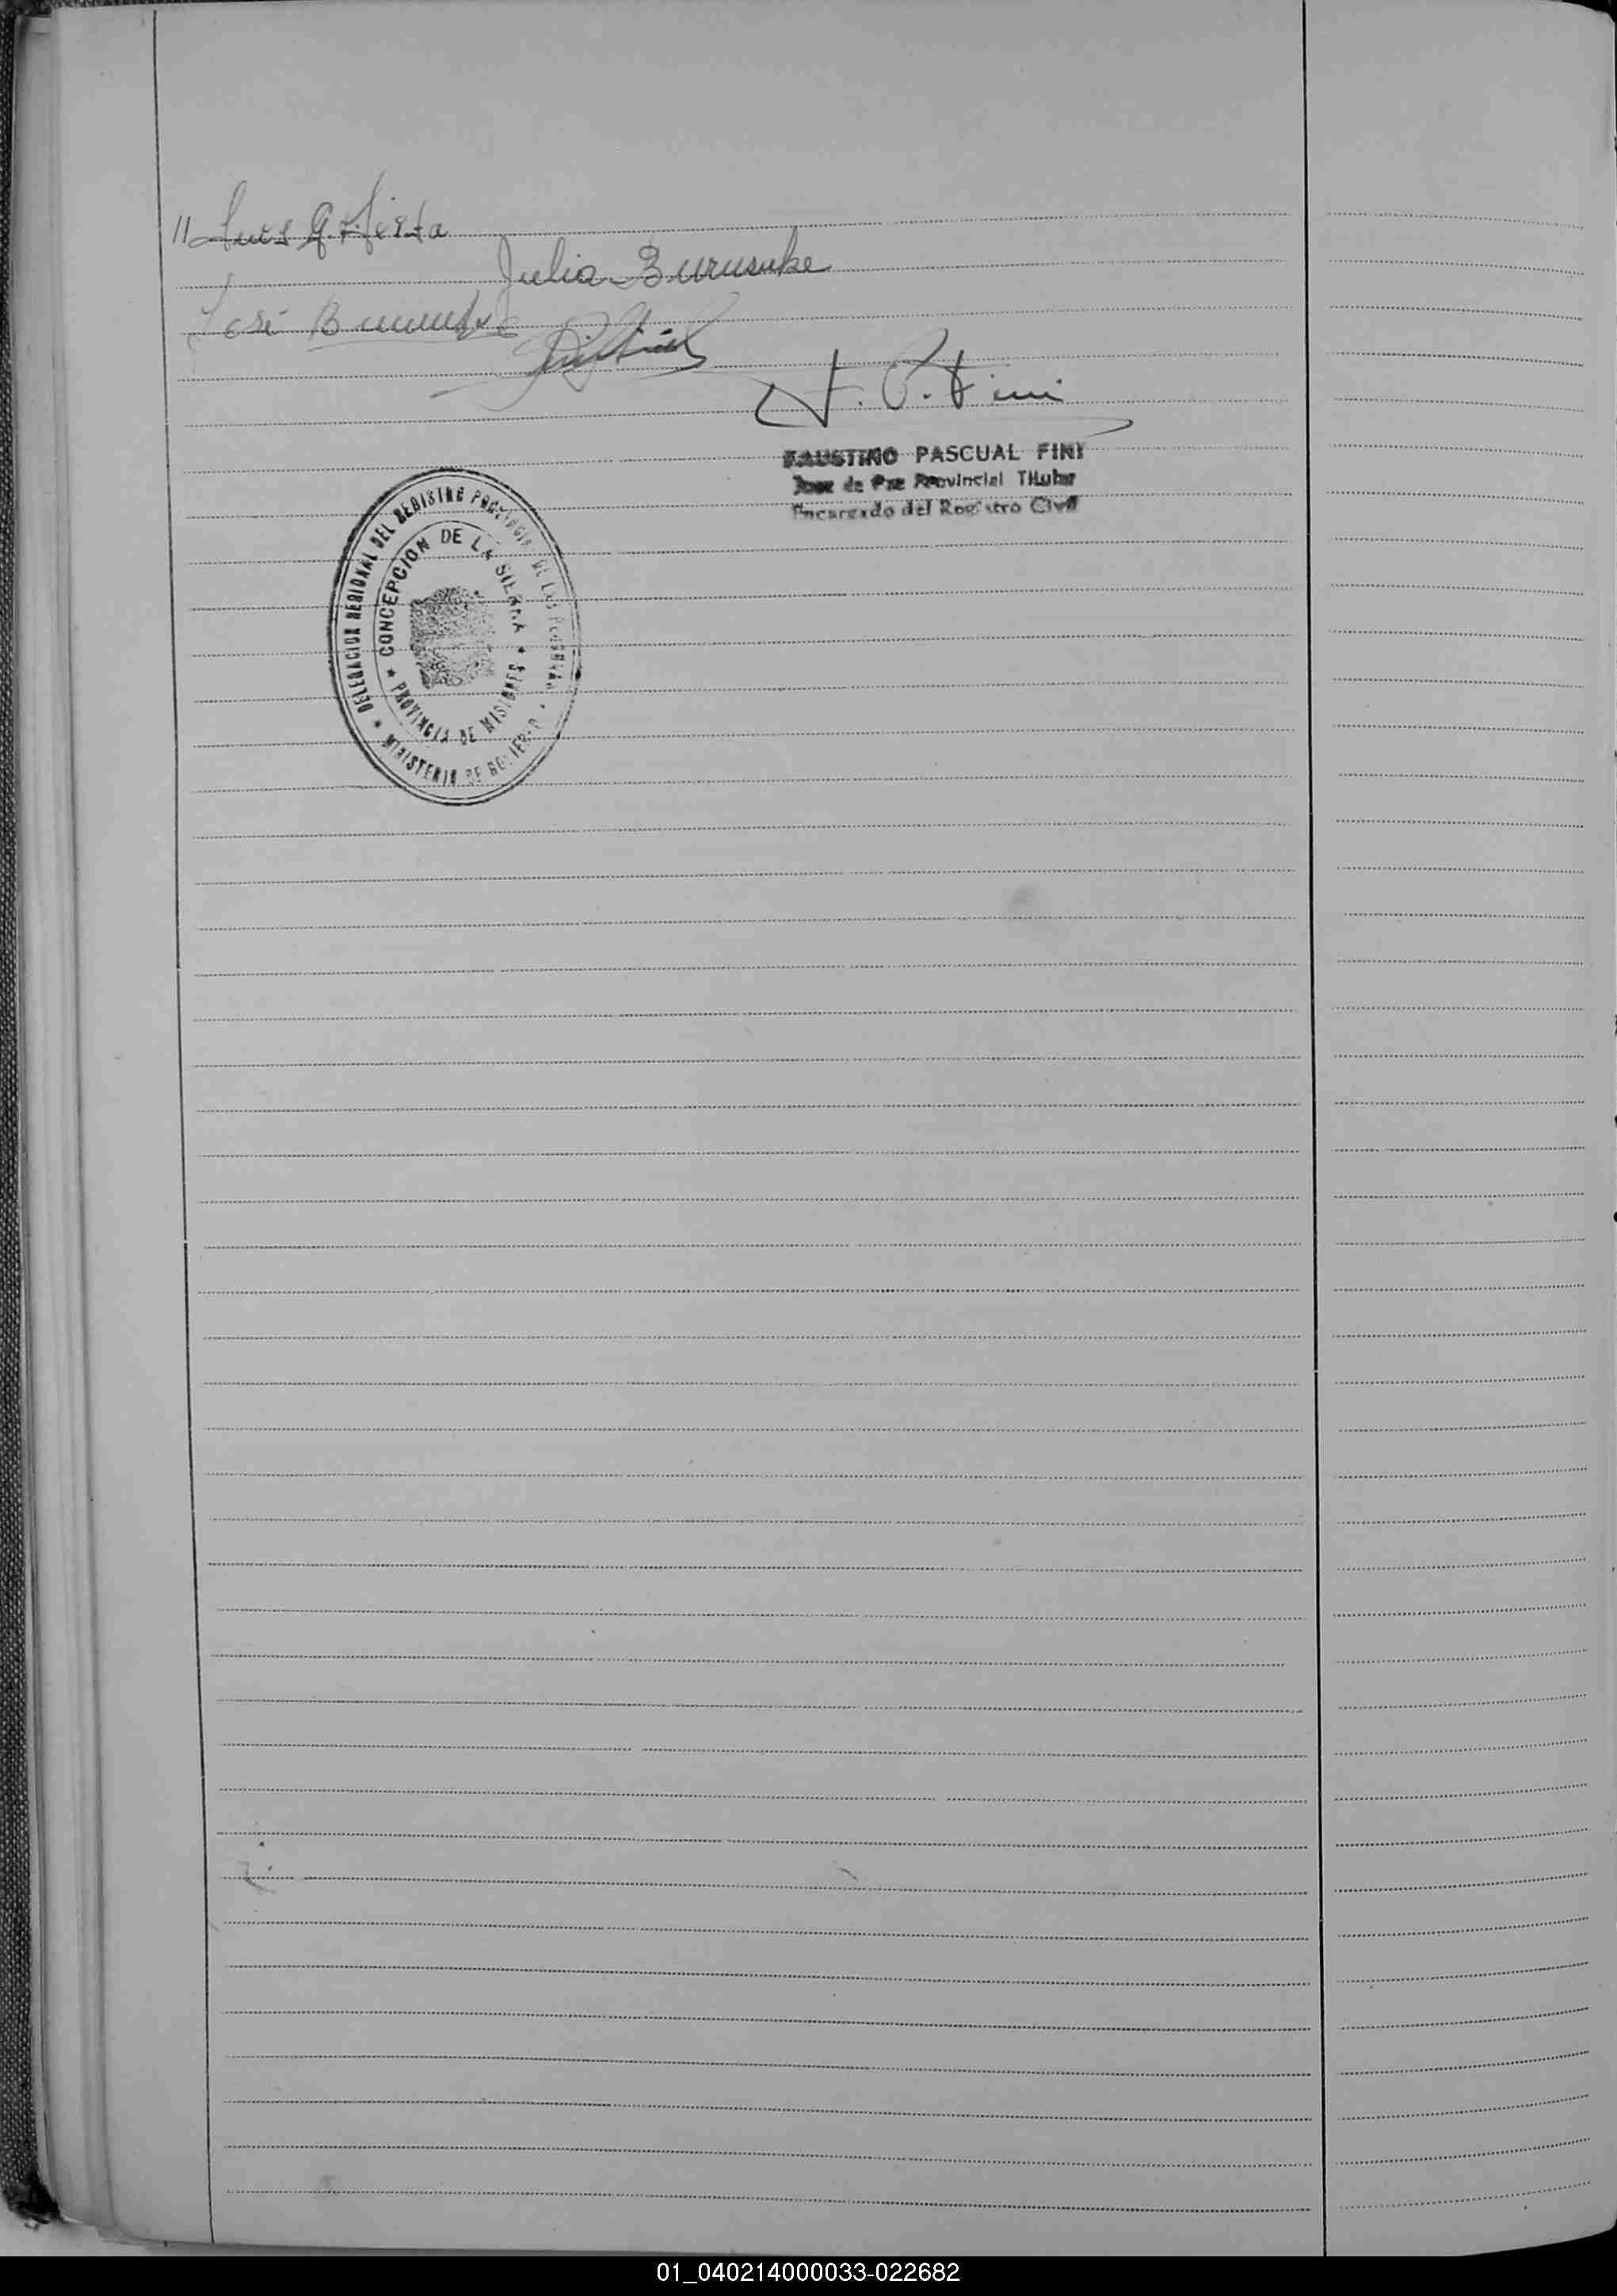 Julia Burusuke
José
F. P. Fini
FAUSTINO PASCUAL FINI
Juez de Paz Provincial Titular
Encargado del Registro Civil
DELEGACION REGIONAL DEL REGISTRO PROVINCIAL DE LAS PERSONAS
CONCEPCION DE LA SIERRA
PROVINCIA DE MISIONES
MINISTERIO DE GOBIERNO
01_040214000033-022682